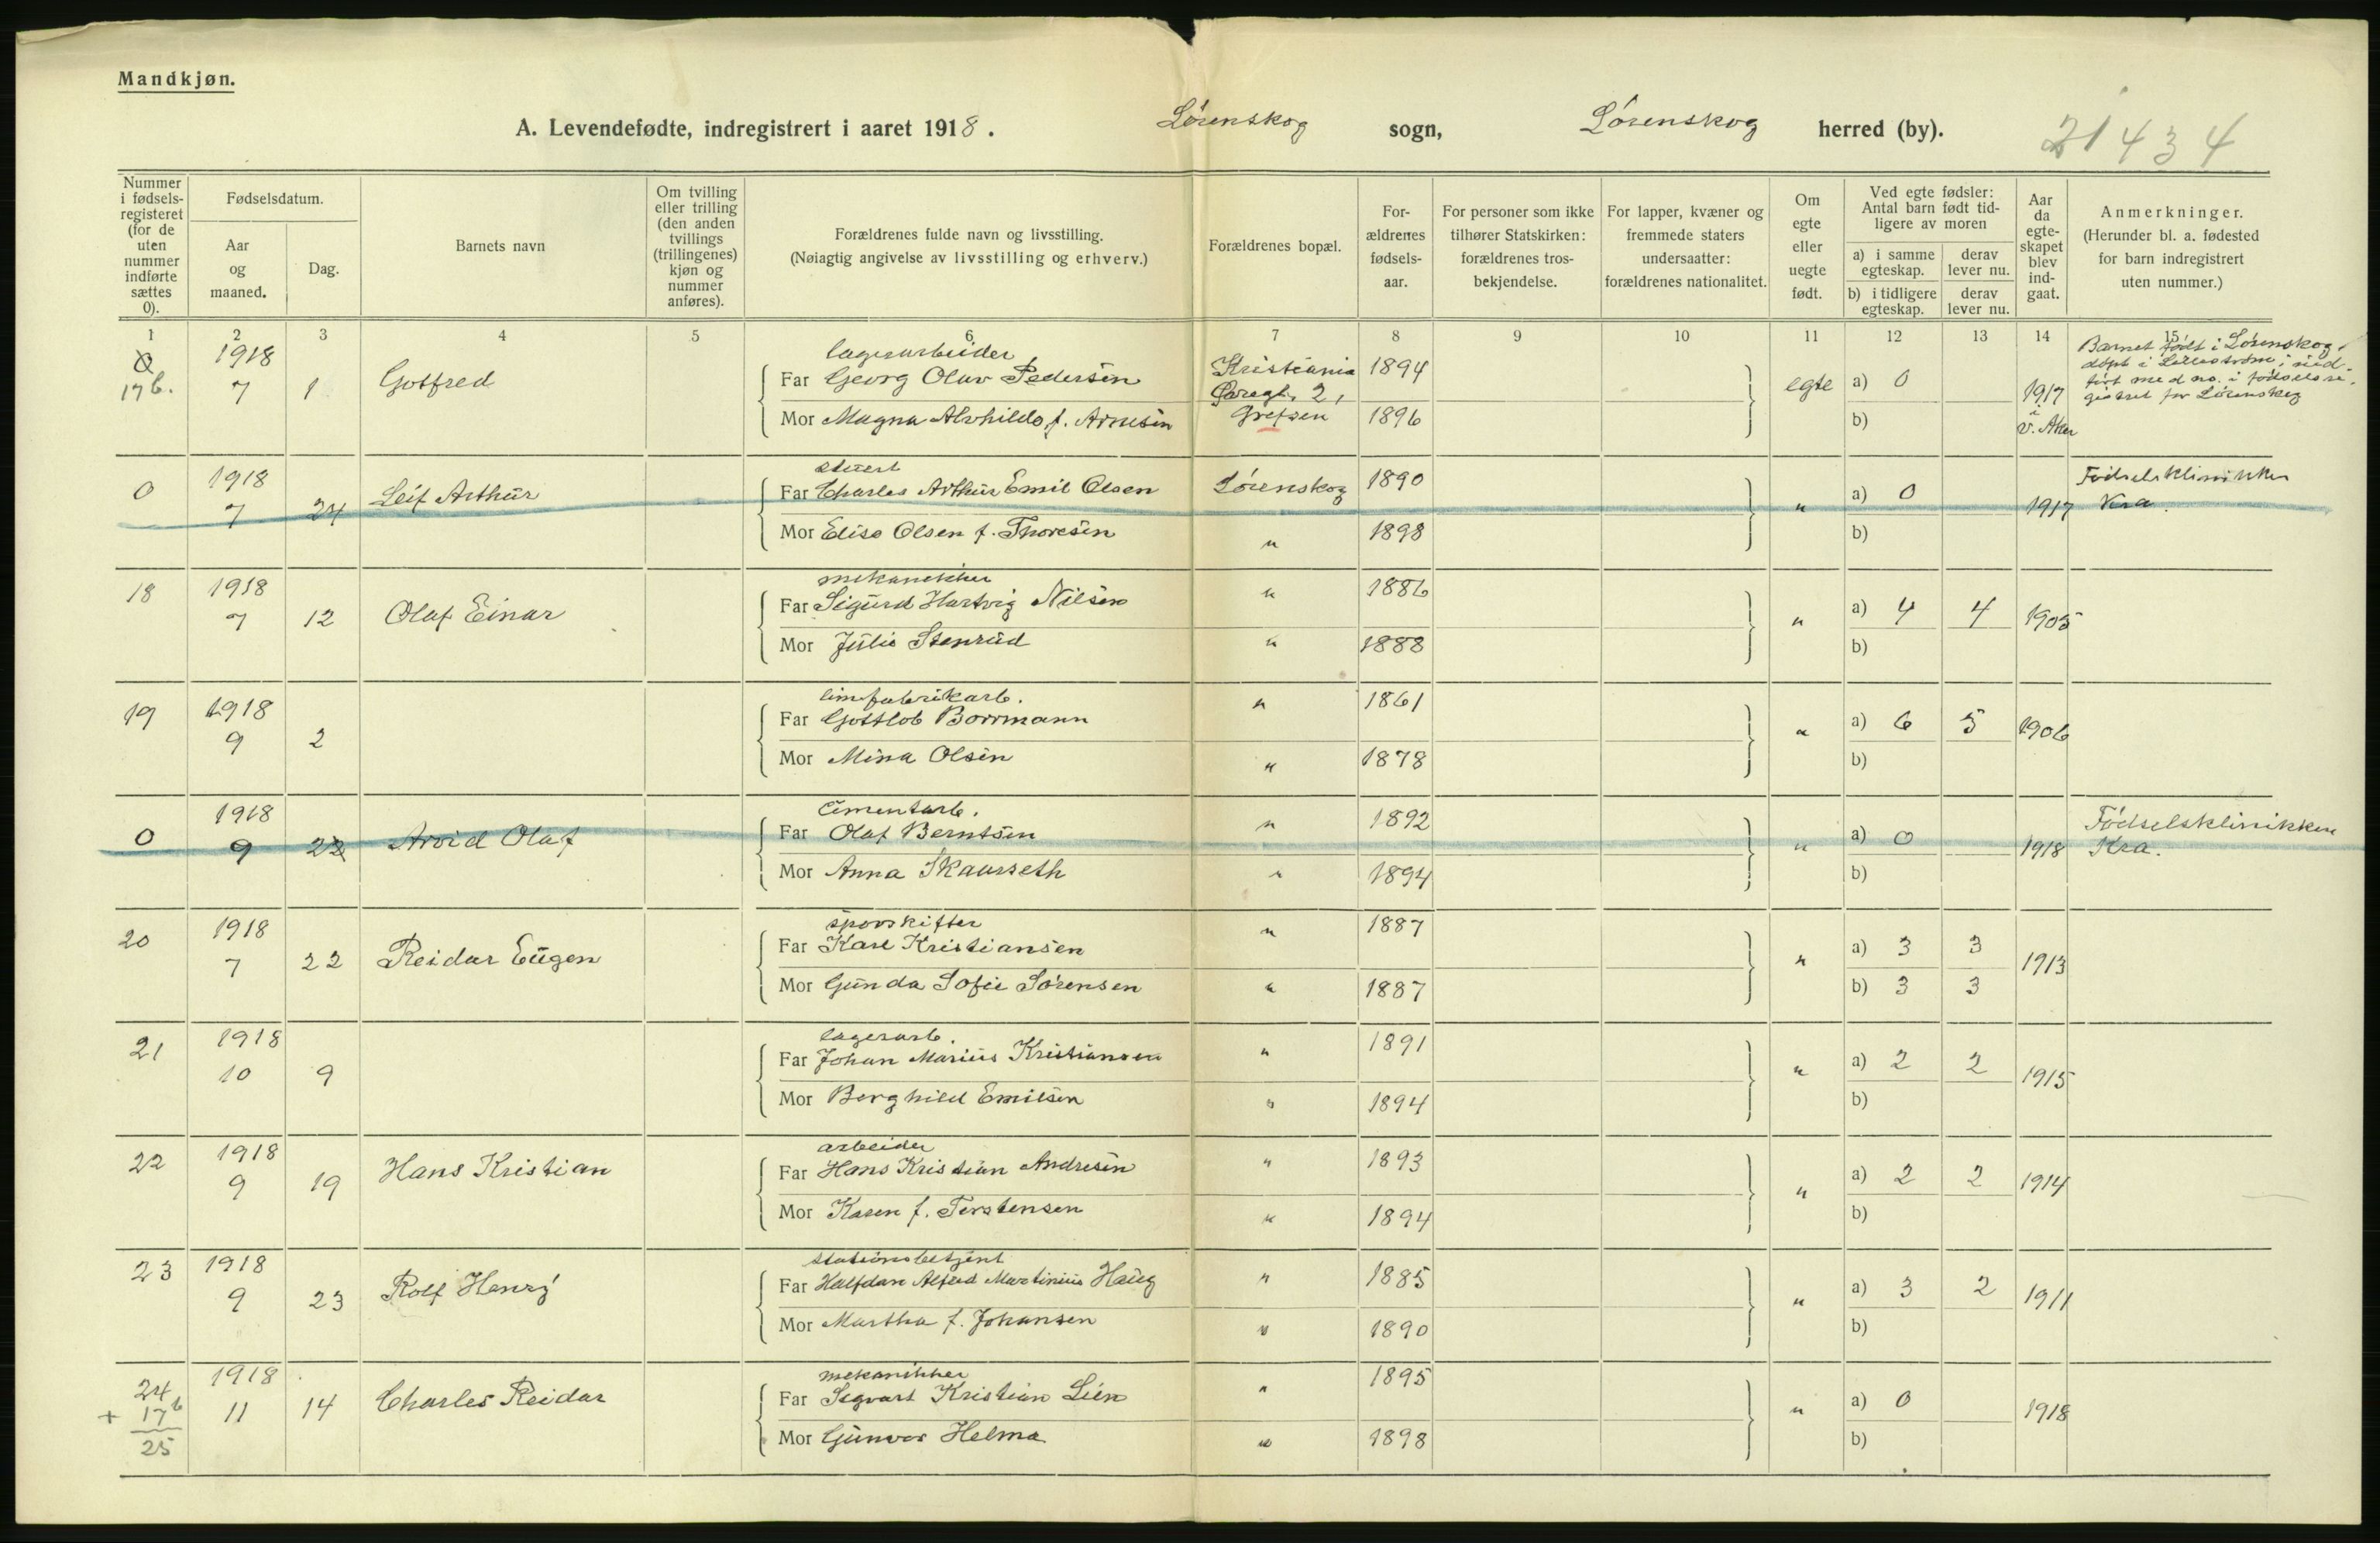 Mandkjøn.
A. Levendefødte, indregistrert i aaret 1918. Lørenskog sogn, Lørenskog herred (by). 21434
Nummer i fødsels-registeret (for de uten nummer indførte sættes 0).
Fødselsdatum.
Aar og maaned.
Dag.
Barnets navn
Om tvilling eller trilling (den anden tvillings (trillingenes) kjøn og nummer anføres).
Forældrenes fulde navn og livsstilling.
(Nøiagtig angivelse av livsstilling og erhverv.)
Forældrenes bopæl.
For-ældrenes fødsels-aar.
For personer som ikke tilhører Statskirken: forældrenes tros-bekjendelse.
For lapper, kvæner og fremmede staters undersaatter: forældrenes nationalitet.
Om egte eller uegte født.
Ved egte fødsler: Antal barn født tid-ligere av moren
a) i samme egteskap.
derav lever nu.
b) i tidligere egteskap.
derav lever nu.
Aar da egte-skapet blev ind-gaat.
Anmerkninger.
(Herunder bl. a. fødested for barn indregistrert uten nummer.)
1 2 3 4 5 6 7 8 9 10 11 12 13 14 15
0 17b. 1918 7 1 Gotfred
lagerarbeider
Far Georg Olav Pedersen Kristiania 1894
2, Grefsen
Mor Magna Alvhilde f. Arnesen 1896
egte a) 0 1917 i V. Aker
b)
Barnet født i Lørenskog,
døpt i Lillestrøm, ind-
ført med no. i fødselsre-
gistret for Lørenskog
0 1918 7 24 Leif Arthur
stuert
Far Charles Arthur Emil Olsen Lørenskog 1890
Mor Elise Olsen f. Thoresen " 1898
" a) 0 1917
b)
Fødselsklinikken
Kra.
18 1918 7 12 Olaf Einar
mekanikker
Far Sigurd Hartvig Nilsen " 1886
Mor Julie Stenrud " 1888
" a) 4 4 1905
b)
19 1918 9 2
limfabrikarb.
Far Gottlob Borrmann " 1861
Mor Mina Olsen " 1878
" a) 6 5 1906
b)
0 1918 9 22 Arvid Olaf
Cementarb.
Far Olaf Berntsen " 1892
Mor Anna Skaurseth " 1894
" a) 0 1918
b)
Fødselsklinikken
Kra.
20 1918 7 22 Reidar Eugen
sporskifter
Far Karl Kristiansen " 1887
Mor Gunda Sofie Sørensen " 1887
" a) 3 3 1913
b) 3 3
21 1918 10 9
lagerarb.
Far Johan Marius Kristiansen " 1891
Mor Borghild Emilsen " 1894
" a) 2 2 1915
b)
22 1918 9 19 Hans Kristian
arbeider
Far Hans Kristian Andresen " 1893
Mor Karen f. Torstensen " 1894
" a) 2 2 1914
b)
23 1918 9 23 Rolf Henry
stationsbetjent
Far Halfdan Alfred Martinius Haug " 1885
Mor Martha f. Johansen " 1890
" a) 3 2 1911
b)
24 1918 11 14 Charles Reidar
+ 17b
25
mekanikker
Far Segvart Kristian Lien " 1895
Mor Gunvor Helma " 1898
" a) 0 1918
b)